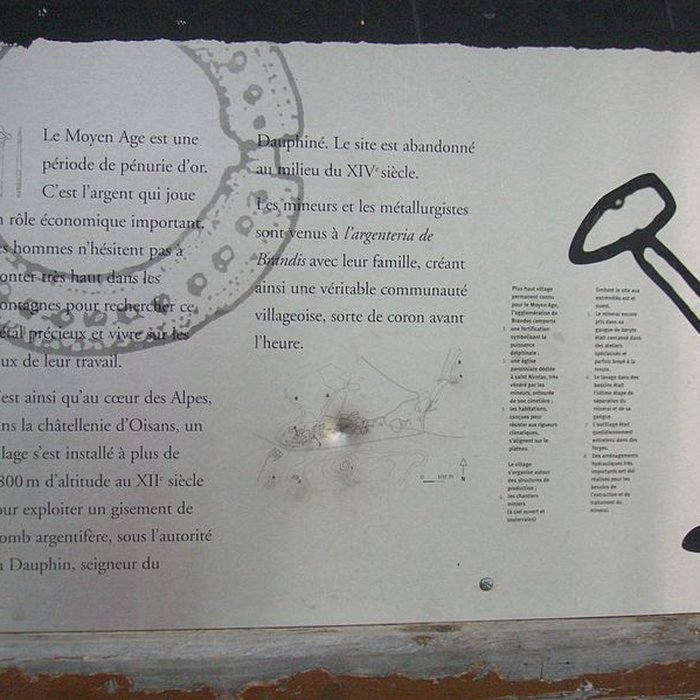 Le Moyen Age est une
période de pénurie d'or.
C'est l'argent qui joue
rôle économique important.
hommes n'hésitent pas à
onter très haut dans les
ontagnes pour rechercher ce
étal précieux et vivre sur les
ux de leur travail.
est ainsi qu'au cœur des Alpes,
ns la châtellenie d'Oisans, un
lage s'est installé à plus de
800 m d'altitude au XIIe siècle
ur exploiter un gisement de
omb argentifère, sous l'autorité
Dauphin, seigneur du
Dauphiné. Le site est abandonné
au milieu du XIVe siècle.
Les mineurs et les métallurgistes
sont venus à l'argenteria de
Brandis avec leur famille, créant
ainsi une véritable communauté
villageoise, sorte de coron avant
l'heure.
100 m
N
Plus haut village
permanent connu
pour le Moyen Age,
l'agglomération de
Brandes comporte
1 une fortification
symbolisant la
puissance
delphinale ;
2 une église
paroissiale dédiée
à saint Nicolas, très
vénéré par les
mineurs, entourée
de son cimetière ;
3 les habitations,
conçues pour
résister aux rigueurs
climatiques,
s'alignent sur le
plateau.
Le village
s'organise autour
des structures de
production ;
4 les chantiers
miniers
(à ciel ouvert et
souterrains)
limitent le site aux
extrémités est et
ouest.
5 Le minerai encore
pris dans sa
gangue de baryte
était concassé dans
des ateliers
spécialisés et
parfois broyé à la
meule.
6 Le lavage dans des
bassins était
l'ultime étape de
séparation du
minerai et de sa
gangue.
7 L'outillage était
quotidiennement
entretenu dans des
forges.
8 Des aménagements
hydrauliques très
importants ont été
réalisés pour les
besoins de
l'extraction et du
traitement du
minerai.